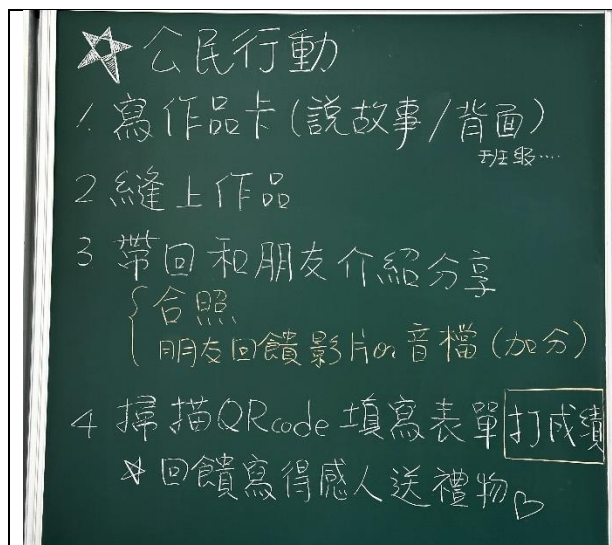 ☆公民行動
1. 寫作品卡(說故事/背面)
班級....
2 縫上作品
3 帶回和朋友介紹分享
合照
朋友回饋影片or音檔(加分)
4 掃描QRcode填寫表單打成績
☆回饋寫得感人送禮物♡